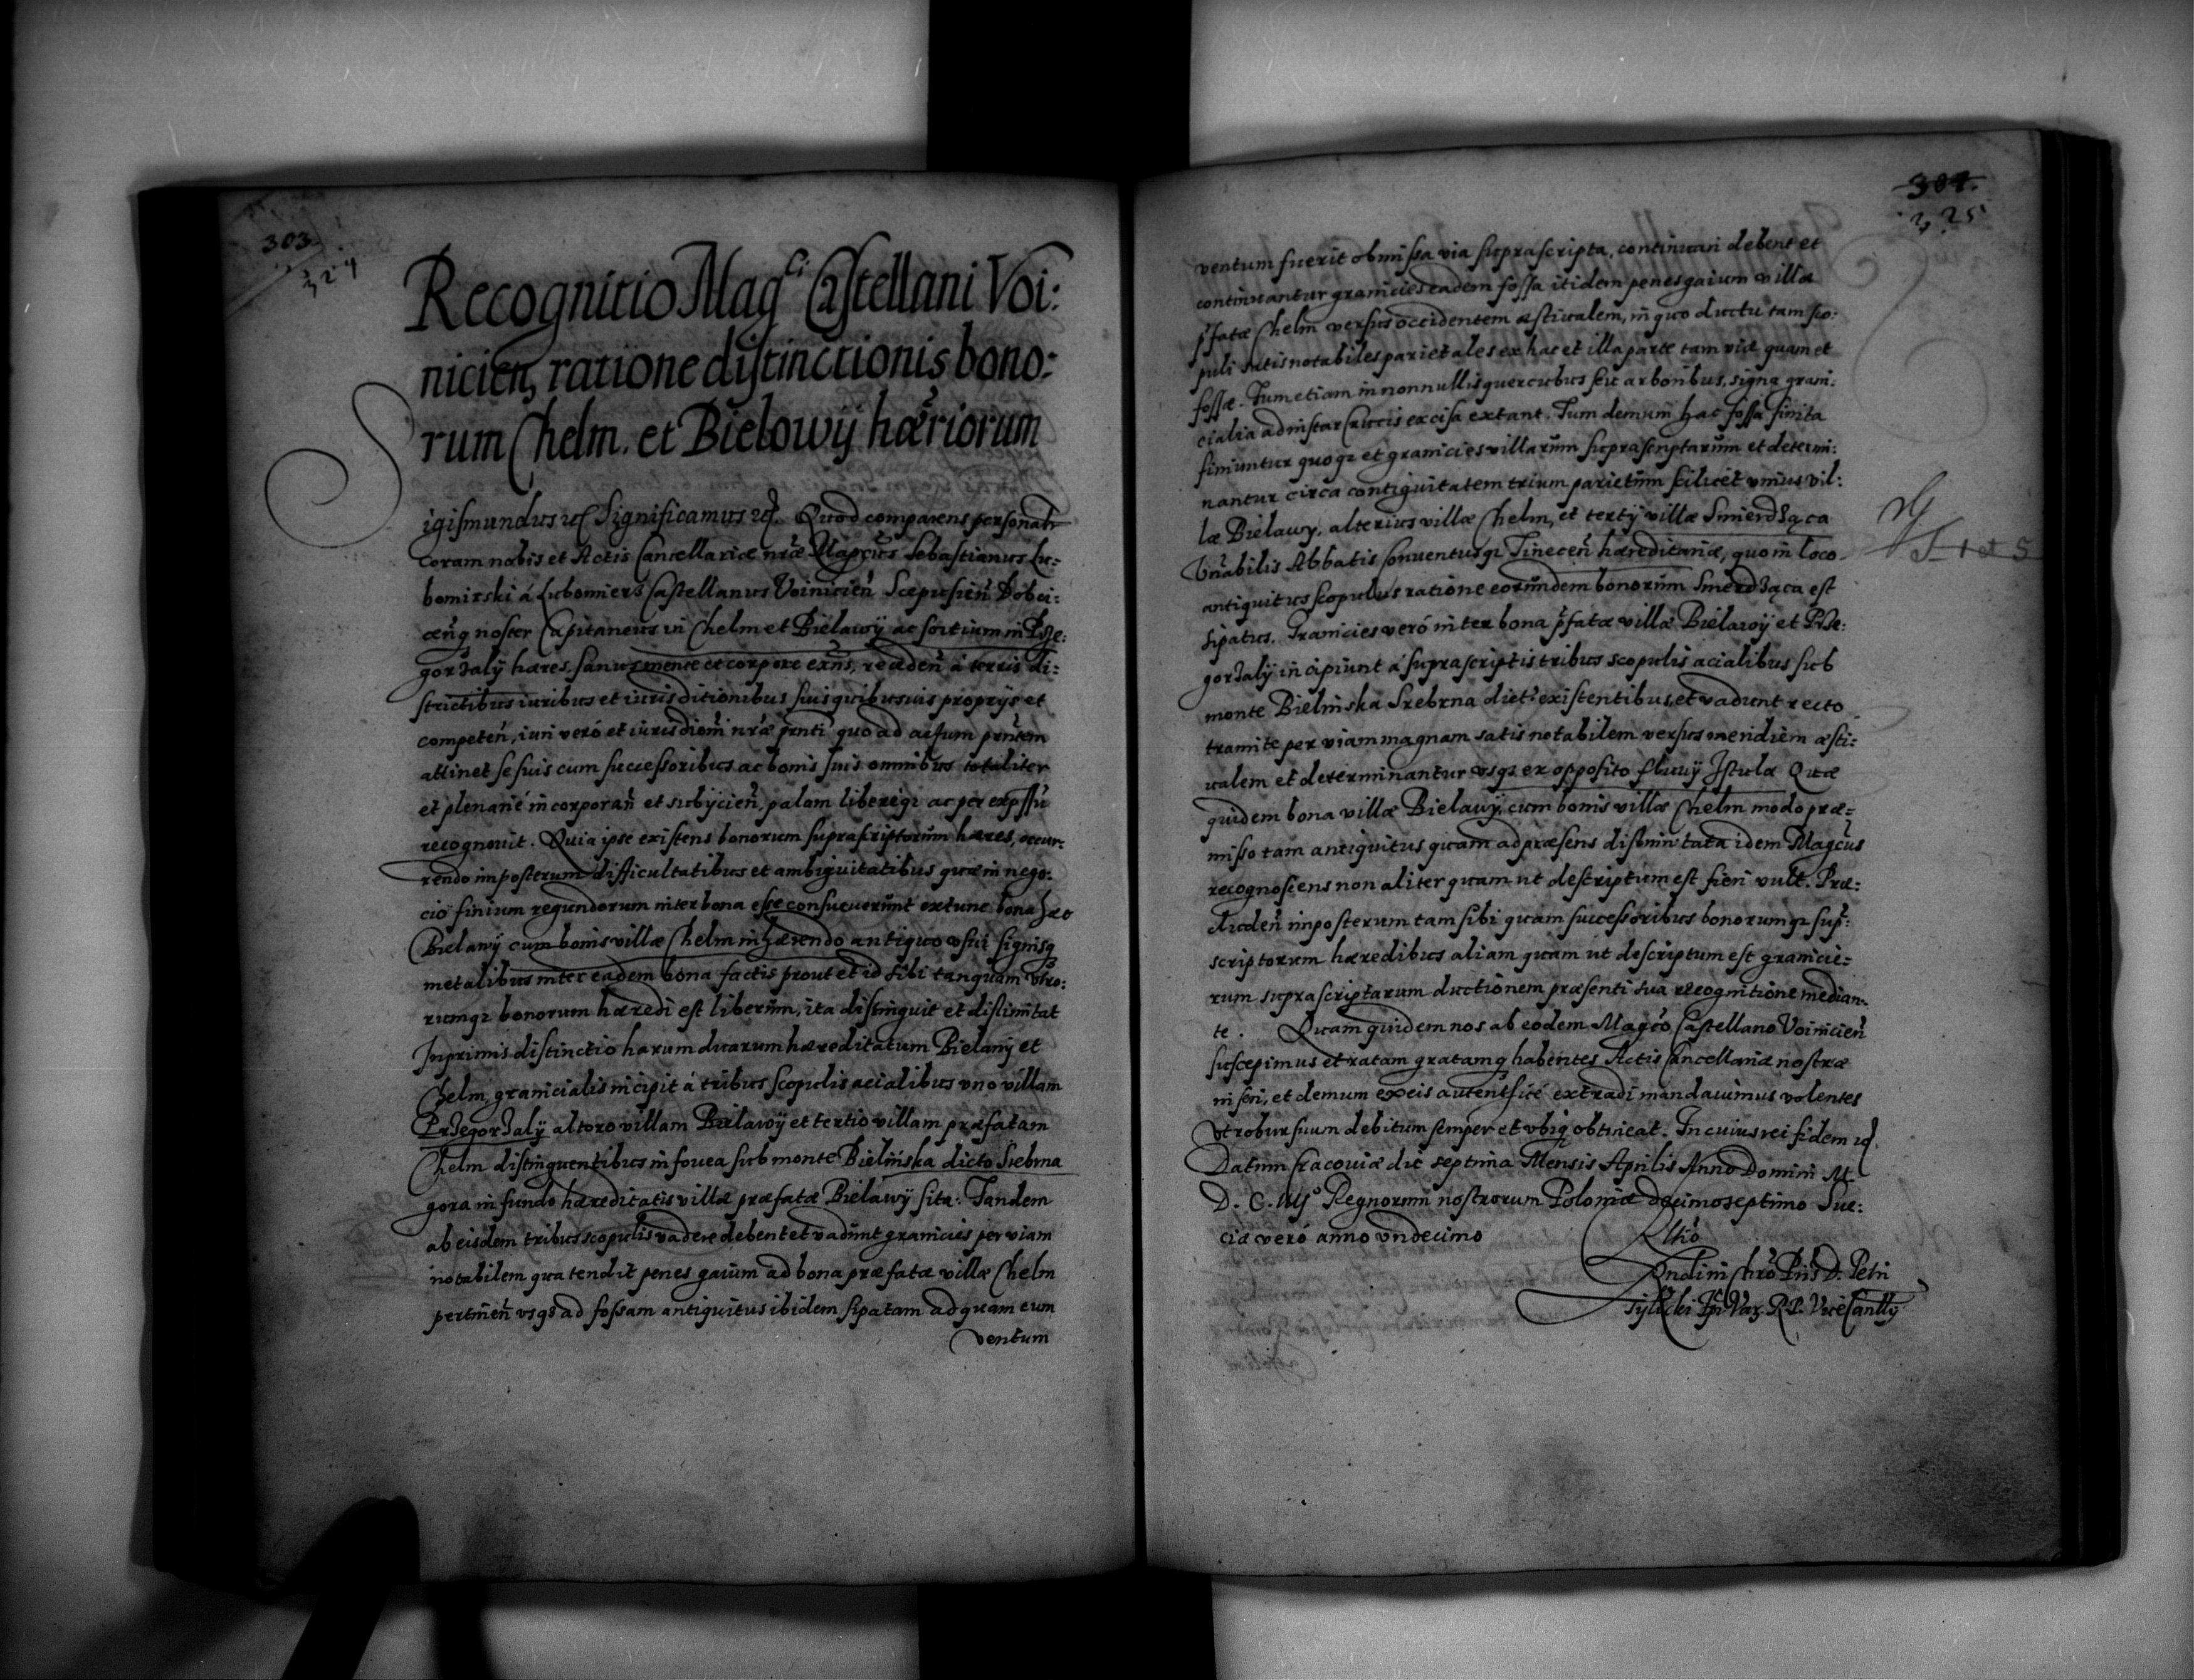 303
324
Recognitio Mag^ci Castellani Voi:
nicien, ratione distinctionis bono:
rum Chelm. et Bielowÿ hæriorum
Sigismundus etc Significamus etc. Quod comparens personalr
coram nobis et Actis Cancellariæ nræ Magcus Sebastianus Lu:
bomirski á Lubomierz Castellanus Voinicien Scepusien Dobci:
cenq noster Capitaneus in Chelm et Bielawÿ ac sortium in Prze:
gorzaly hæres. sanus mente et corpore exns, recæden á terris di:
strictibus iuribus et iurisditionibus suis quibusuis proprijs et
competen, iuri veró et iurisdiom nræ prnti quo ad actum prntem
attinet se suis cum successoribus ac bonis suis omnibus totaliter
et plenarié incorporan et subÿcien, palam libereqз ac per expssu
recognouit. Quia ipse existens bonorum suprascriptorum hæres, occur:
rendo imposterum difficultatibus et ambiguitatibus quæ in nego:
cio finium regundorum inter bona esse consueuerunt extunc bona hæc
Bielawÿ cum bonis villæ Chelm inhærendo antiquo vsui signisq
metalibus inter eadem bona factis prout et id sibi tanquam vtro:
rumqз bonorum hæredi est liberum, ita distinguit et dislimitat
Inprimis distinctio harum duarum hæreditatum Bielany et
Chelm, granicialis incipit á tribus scopulis acialibus vno villam
Przegorzalÿ altero villam Bielawÿ et tertio villam præfatam
Chelm distinguentibus in fouea sub monte Bielińska dicto Srebrna
gora in fundo hæreditatis villæ præfatæ Bielawÿ sita: Tandem
ab eisdem tribus scopulis vadere debent et vadunt granicies per viam
notabilem qua tendit penes gaium ad bona præfatæ villæ Chelm
pertinen vsqз ad fossam antiquitus ibidem sipatam ad quam cum
ventum
304.
325
ventum fuerit obmissa via suprascripta, continuari debent et
continuantur granicies eadem fossa itidem penes gaium villæ
pfatæ Chelm versus occidentem æstiualem, in quo ductu tam sco:
puli satis notabiles parietales ex hac et illa parte tam viæ quam et
fossæ. Tum etiam in nonnullis quercubus seu arboribus, signa grani:
cialia ad instar Crucis excisa extant. Tum demum hac fossa finita
finiuntur quoqз et granicies villarum suprascriptarum et determi:
nantur circa contiguitatem trium parietum scilicet vnius vil:
læ Bielawy, alterius villæ Chelm, et tertÿ villæ Smierdząca
Vnabilis Abbatis Conuentusqз Tinecen hæreditariæ, quo in loco
antiquitus scopulus ratione eorundem bonorum Smerdząca est
sipatus. Granicies veró inter bona pfatæ villæ Bielawÿ et Prze:
gorzalÿ incipiunt á suprascriptis tribus scopulis acialibus sub
monte Bielinska Srebrna dict: existentibus, et vadunt recto
tramite per viam magnam satis notabilem versus meridiem æsti:
ualem et determinantur vsqз ex opposito fluuÿ Istulæ Quæ
quidem bona villæ Bielawÿ, cum bonis villæ Chelm modo præ:
misso tam antiquitus quam ad præsens dislimitata idem Magcus
recognosiens non aliter quam ut descriptum est fieri vult. Præ:
cluden imposterum tam sibi quam successoribus bonorumqз sup:
scriptorum hæredibus aliam quam ut descriptum est granicie:
rum suprascriptarum ductionem præsenti sua recognitione median:
te. Quam quidem nos ab eodem Magco Castellano Voinicien
suscepimus et ratam gratamq habentes Actis Cancellariæ nostræ
inseri, et demum ex eis autentficé extradi mandauimus volentes
vt robur suum debitum semper et vbiq obtineat. In cuius rei fidem etc.
Datum Cracouiæ die septima Mensis Aprilis Anno Domini M.
D. C. iiijº Regnorum nostrorum Poloniæ decimoseptimo Sue:
ciæ veró anno vndecimo
Rltio
Rndi in Chro Pris D. Petri
Tylicki Epi Var. R.P. ViceCancllÿ